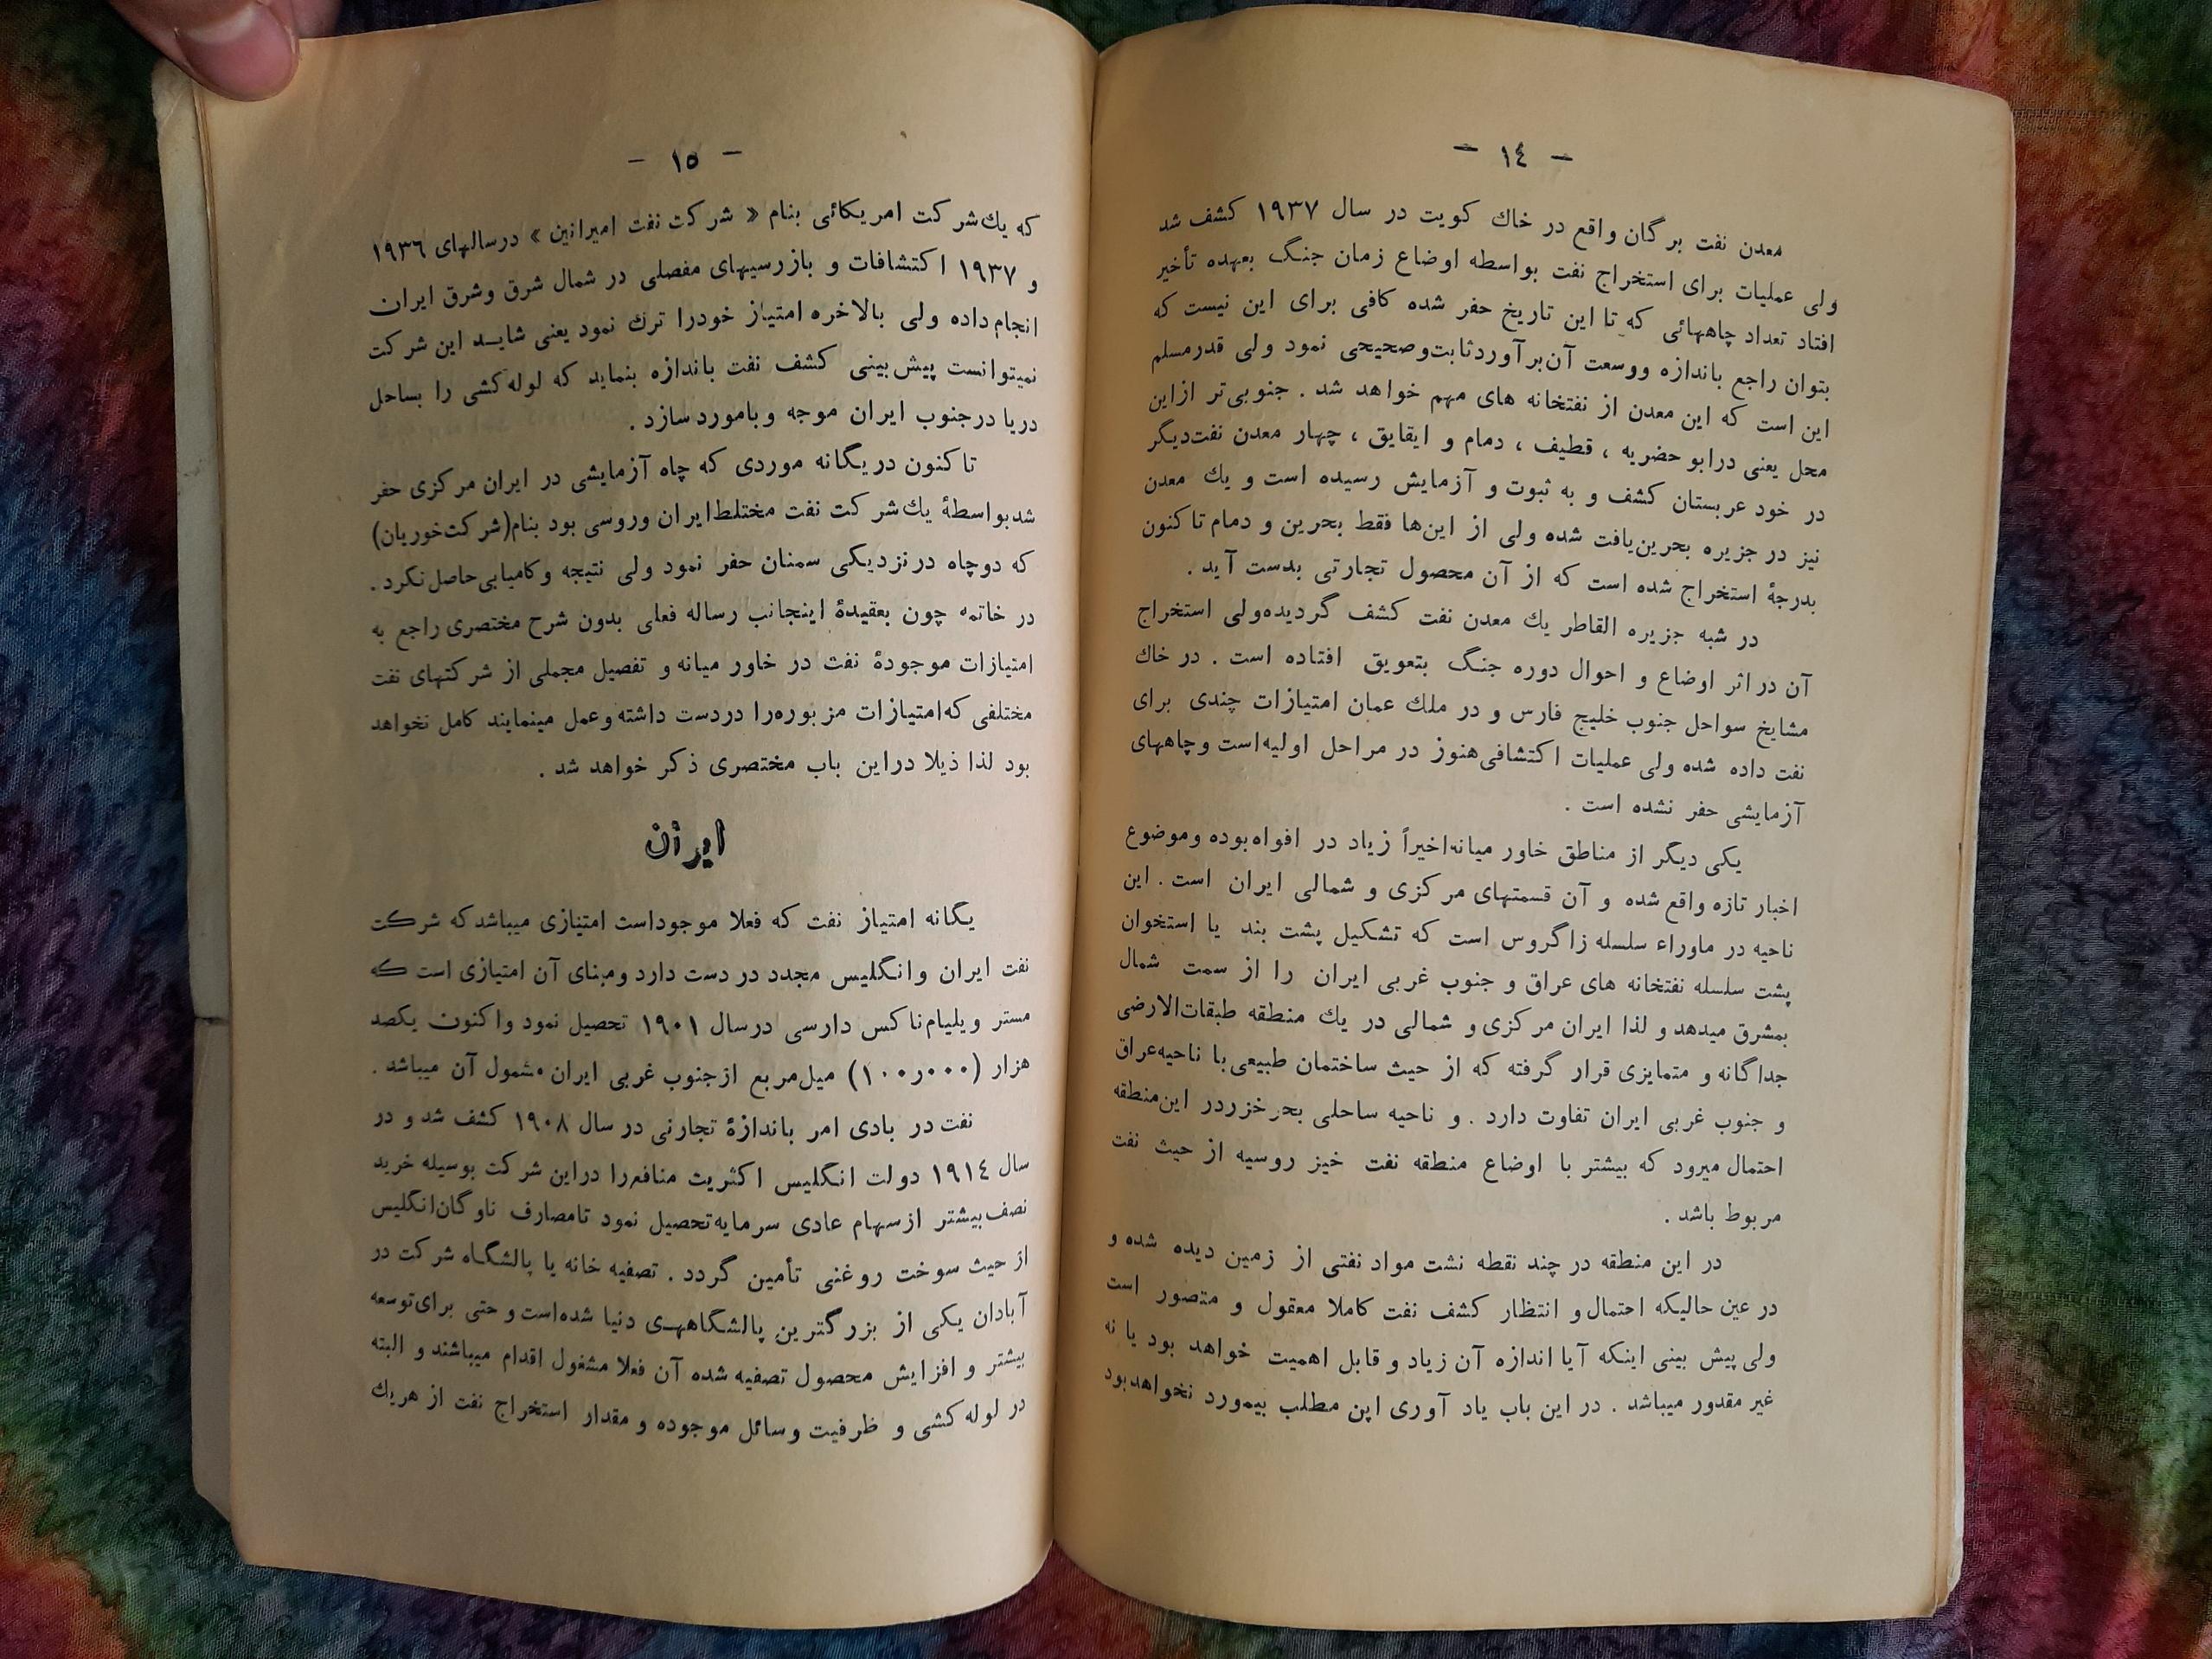 - ١٤ -
معدن نفت برگان واقع در خاك كويت در سال ١٩٣٧ كشف شد
ولی عمليات برای استخراج نفت بواسطه اوضاع زمان جنگ بعهده تأخير
افتاد تعداد چاههائی كه تا اين تاريخ حفر شده كافی برای اين نيست كه
بتوان راجع باندازه ووسعت آن برآورد ثابت وصحيحی نمود ولی قدر مسلم
اين است كه اين معدن از نفتخانه های مهم خواهد شد . جنوبی تر ازاين
محل يعنی درابو حضريه ، قطيف ، دمام و ايقايق ، چهار معدن نفت ديگر
در خود عربستان كشف و به ثبوت و آزمايش رسيده است و يك معدن
نيز در جزيره بحرين يافت شده ولی از اين ها فقط بحرين و دمام تا كنون
بدرجۀ استخراج شده است كه از آن محصول تجارتی بدست آيد .
در شبه جزيره القاطر يك معدن نفت كشف گرديده ولی استخراج
آن در اثر اوضاع و احوال دوره جنگ بتعويق افتاده است . در خاك
مشايخ سواحل جنوب خليج فارس و در ملك عمان امتيازات چندی برای
نفت داده شده ولی عمليات اكتشافی هنوز در مراحل اوليه است وچاههای
آزمايشی حفر نشده است .
يكی ديگر از مناطق خاور ميانه اخيراً زياد در افواه بوده وموضوع
اخبار تازه واقع شده و آن قسمتهای مركزی و شمالی ايران است . اين
ناحيه در ماوراء سلسله زاگروس است كه تشكيل پشت بند يا استخوان
پشت سلسله نفتخانه های عراق و جنوب غربی ايران را از سمت شمال
بمشرق ميدهد و لذا ايران مركزی و شمالی در يك منطقه طبقات الارضی
جداگانه و متمايزی قرار گرفته كه از حيث ساختمان طبيعی با ناحيه عراق
و جنوب غربی ايران تفاوت دارد . و ناحيه ساحلی بحر خزر در اين منطقه
احتمال ميرود كه بيشتر با اوضاع منطقه نفت خيز روسيه از حيث نفت
مربوط باشد .
در اين منطقه در چند نقطه نشت مواد نفتی از زمين ديده شده و
در عين حاليكه احتمال و انتظار كشف نفت كاملا معقول و متصور است
ولی پيش بينی اينكه آيا اندازه آن زياد و قابل اهميت خواهد بود يا نه
غير مقدور ميباشد . در اين باب ياد آوری اين مطلب بيمورد نخواهد بود
- ١٥ -
كه يك شركت امريكائی بنام « شركت نفت اميرانين » درسالهای ١٩٣٦
و ١٩٣٧ اكتشافات و بازرسيهای مفصلی در شمال شرق وشرق ايران
انجام داده ولی بالاخره امتياز خودرا ترك نمود يعنی شايد اين شركت
نميتوانست پيش بينی كشف نفت باندازه بنمايد كه لوله كشی را بساحل
دريا درجنوب ايران موجه وبامورد سازد .
تا كنون در يگانه موردی كه چاه آزمايشی در ايران مركزی حفر
شد بواسطۀ يك شركت نفت مختلط ايران وروسی بود بنام (شركت خوريان)
كه دوچاه درنزديكی سمنان حفر نمود ولی نتيجه وكاميابی حاصل نكرد .
در خاتمه چون بعقيدۀ اينجانب رساله فعلی بدون شرح مختصری راجع به
امتيازات موجودۀ نفت در خاور ميانه و تفصيل مجملی از شركتهای نفت
مختلفی كه امتيازات مزبوره را دردست داشته وعمل مينمايند كامل نخواهد
بود لذا ذيلا دراين باب مختصری ذكر خواهد شد .
ايران
يگانه امتياز نفت كه فعلا موجود است امتيازی ميباشد كه شركت
نفت ايران وانگليس مجدد در دست دارد ومبنای آن امتيازی است كه
مستر ويليام ناكس دارسی درسال ١٩٠١ تحصيل نمود واكنون يكصد
هزار (١٠٠ر٠٠٠) ميل مربع ازجنوب غربی ايران مشمول آن ميباشد .
نفت در بادی امر باندازۀ تجارتی در سال ١٩٠٨ كشف شد و در
سال ١٩١٤ دولت انگليس اكثريت منافع را دراين شركت بوسيله خريد
نصف بيشتر ازسهام عادی سرمايه تحصيل نمود تامصارف ناوگان انگليس
از حيث سوخت روغنی تأمين گردد . تصفيه خانه يا پالشگاه شركت در
آبادان يكی از بزرگترين پالشگاههای دنيا شده است و حتی برای توسعه
بيشتر و افزايش محصول تصفيه شده آن فعلا مشغول اقدام ميباشند و البته
در لوله كشی و ظرفيت وسائل موجوده و مقدار استخراج نفت از هريك